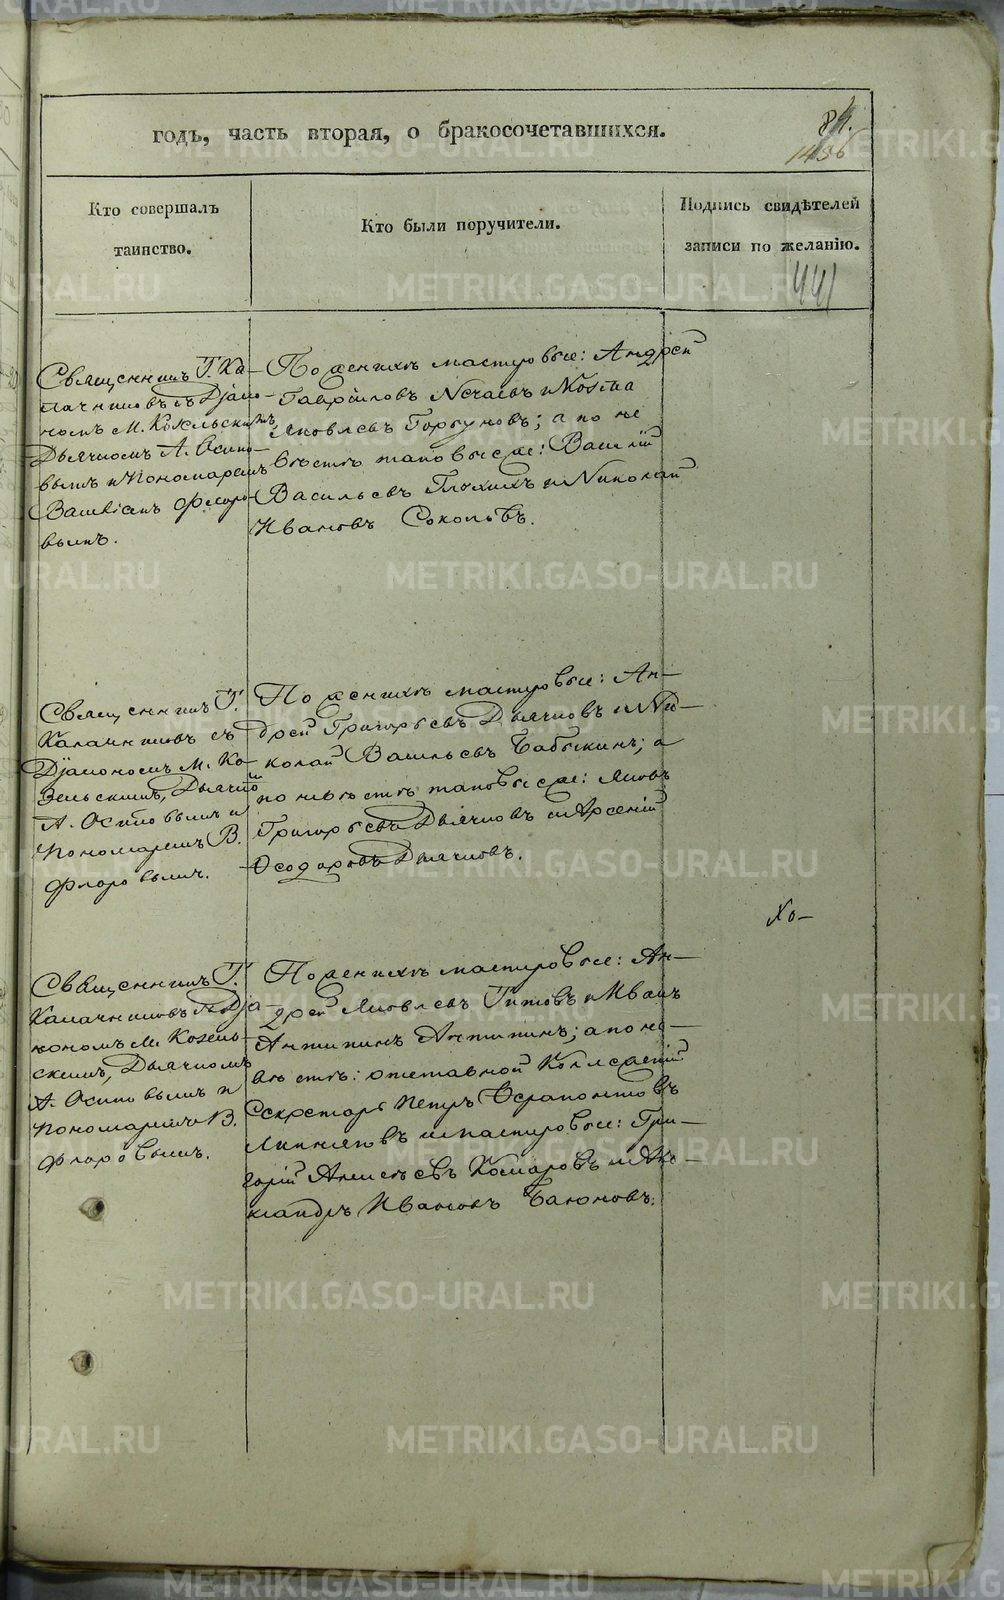 годъ, часть вторая, о бракосочетавшихся.
84.
1436
Кто совершалъ
таинство.
Кто были поручители.
Подпись свидѣтелей
записи по желанію.
441
Священникъ Г. Ка-
лачниковъ съ Діако-
номъ М. Козельскимъ,
Дьячкомъ А. Осипо-
вымъ и Пономаремъ
Флоро-
вымъ.
По женихѣ мастеровые: Андрей
Гавриловъ Нечаевъ и Козма
Яковлевъ Горбуновъ; а по не
вѣстѣ таковые же: Василій
Васильевъ Глухихъ и Николай
Ивановъ Соколовъ.
Священникъ Г.
Калачниковъ съ
Діакономъ М. Ко-
зельскимъ, Дьячко
А. Осиповымъ и
Пономаремъ В.
Флоровымъ.
По женихѣ мастеровые: Ан-
дрей Григорьевъ Дьячковъ и Ни-
колай Васильевъ Бабыкинъ; а
по невѣстѣ таковые же: Яковъ
Григорьевъ Дьячковъ и Арсеній
Ѳеодоровъ Дьячковъ.
Хо-
Священникъ Г.
Калачниковъ съ Діа-
кономъ М. Козель-
скимъ, Дьячкомъ
А. Осиповымъ и
Пономаремъ В.
Флоровымъ.
По женихѣ мастеровые: Ан-
дрей Яковлевъ Титовъ и Иванъ
Антипинъ Антипинъ; а по не-
вѣстѣ: отставной Коллежскій
Секретарь Петръ Ѳерапонтовъ
и мастеровые: Гри-
горій Алексѣевъ Комаровъ и Але-
ксандръ Ивановъ Баюновъ.
METRIKI.GASO-URAL.RU